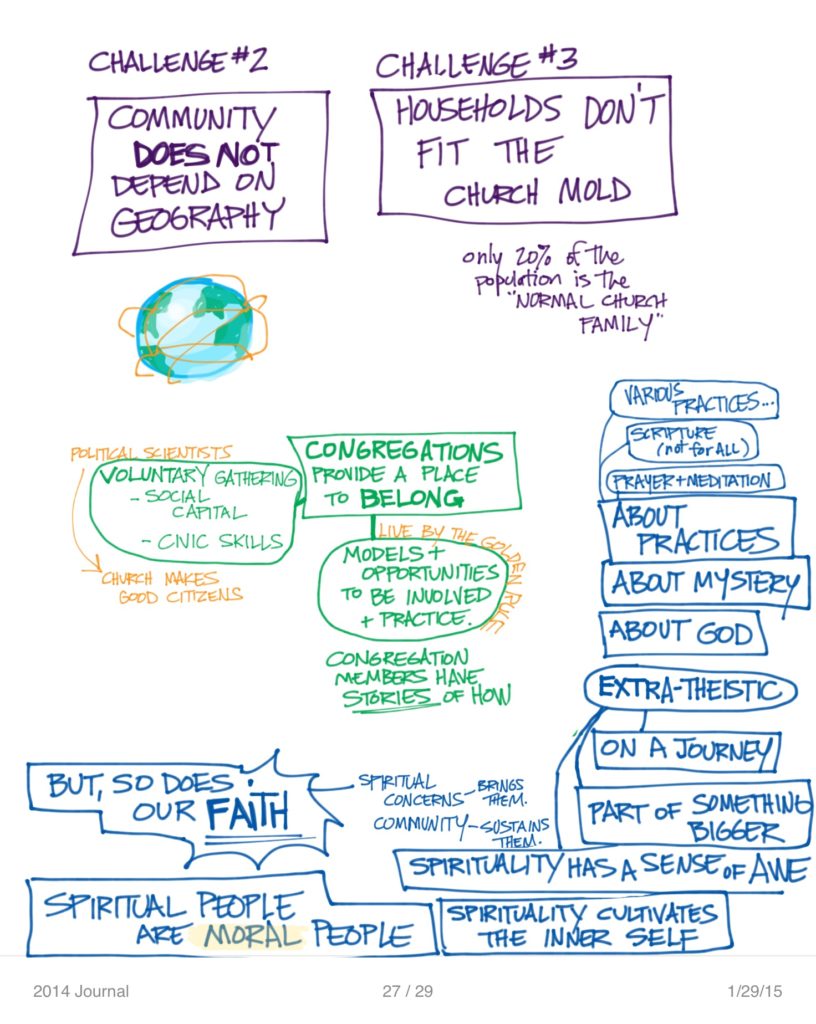 CHALLENGE #2
COMMUNITY
DOES NOT
DEPEND ON
GEOGRAPHY
CHALLENGE #3
HOUSEHOLDS DON'T
FIT THE
CHURCH MOLD
only 20% of the
population is the
"NORMAL CHURCH
FAMILY"
POLITICAL SCIENTISTS
VOLUNTARY GATHERING
- SOCIAL
CAPITAL
- CIVIC SKILLS
CHURCH MAKES
GOOD CITIZENS
CONGREGATIONS
PROVIDE A PLACE
TO BELONG
LIVE BY THE GOLDEN RULE
MODELS +
OPPORTUNITIES
TO BE INVOLVED
+ PRACTICE.
CONGREGATION
MEMBERS HAVE
STORIES OF HOW
VARIOUS
PRACTICES...
SCRIPTURE
(not for ALL)
PRAYER + MEDITATION
ABOUT
PRACTICES
ABOUT MYSTERY
ABOUT GOD
EXTRA-THEISTIC
ON A JOURNEY
PART OF SOMETHING
BIGGER
SPIRITUALITY HAS A SENSE OF AWE
BUT, SO DOES
OUR FAITH
SPIRITUAL
CONCERNS - BRINGS
THEM.
COMMUNITY - SUSTAINS
THEM.
SPIRITUAL PEOPLE
ARE MORAL PEOPLE
SPIRITUALITY CULTIVATES
THE INNER SELF
2014 Journal
27 / 29
1/29/15